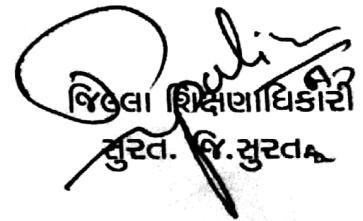 જિલ્લા શિક્ષણાધિકારી
સુરત. જિ.સુરત